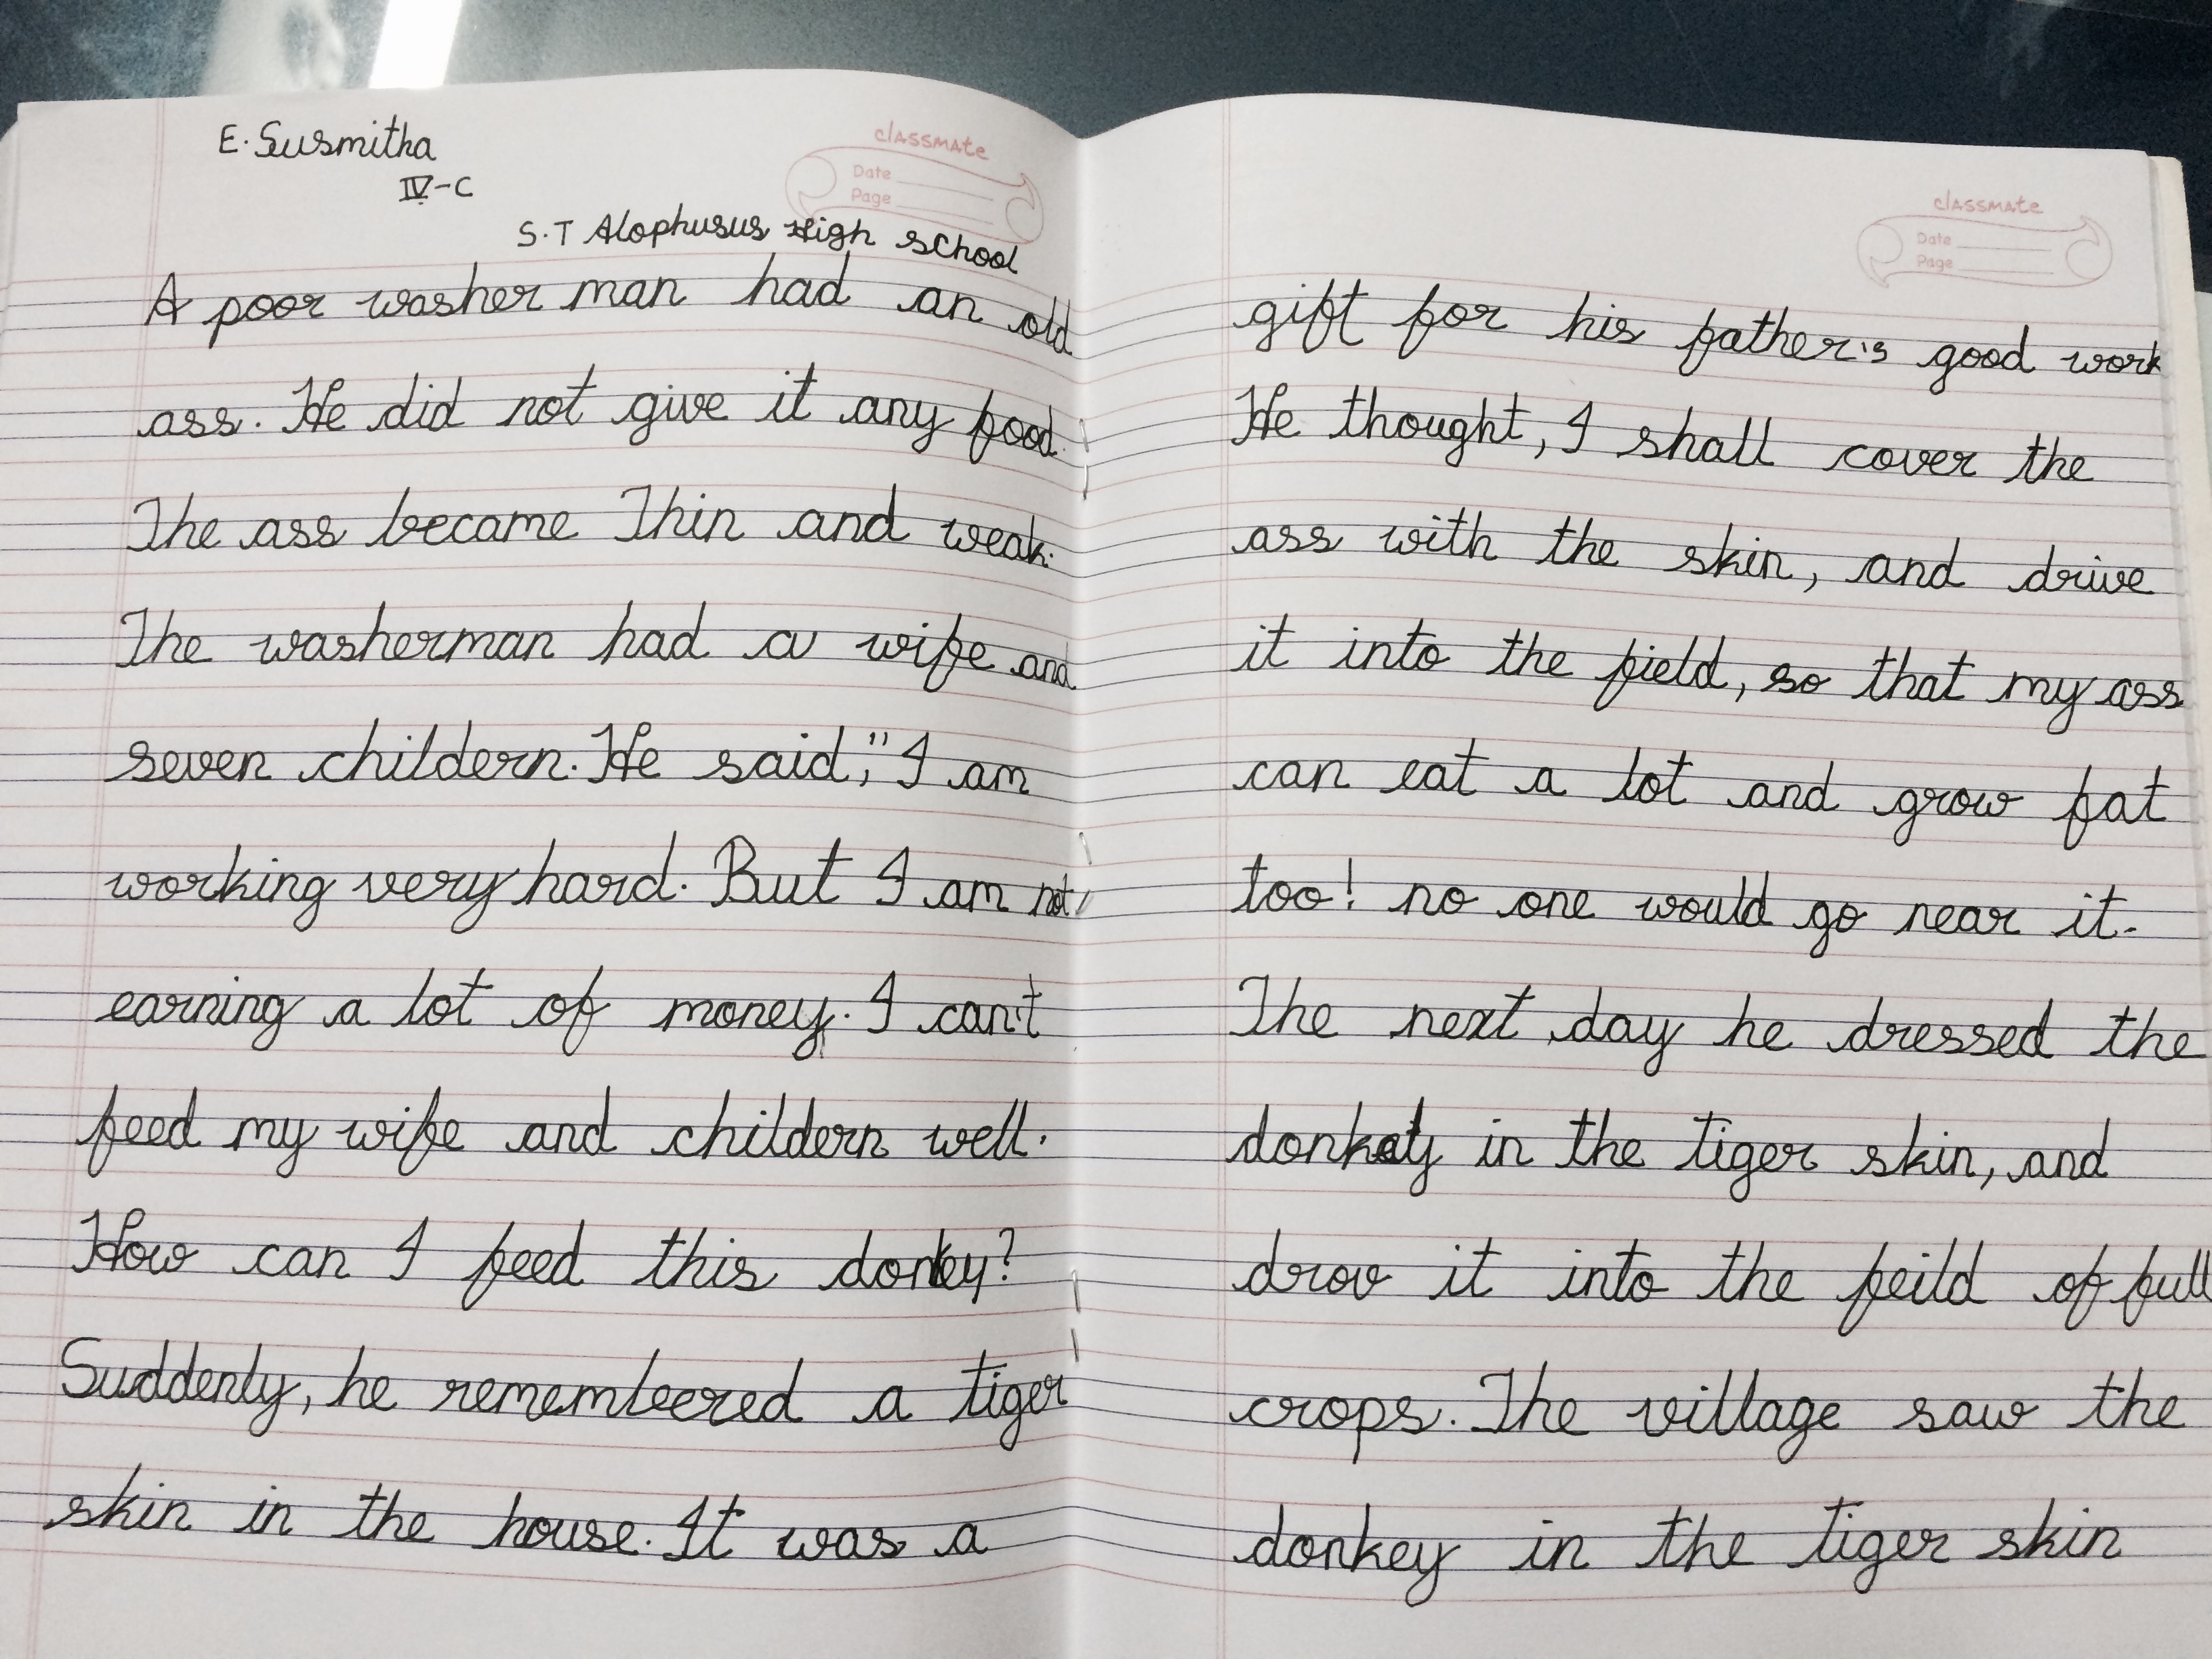 E. Susmitha
IV-C
classmate
Date
Page
S.T Alophusus High school
A poor washer man had an old
ass. He did not give it any food.
The ass became Thin and weak.
The washerman had a wife and
seven childern. He said," I am
working very hard. But I am not
earning a lot of money. I can't
feed my wife and childern well.
How can I feed this donkey?
Suddenly, he remembeered a tiger
skin in the house. It was a
classmate
Date
Page
gift for his father's good work
He thought, I shall cover the
ass with the skin, and drive
it into the field, so that my ass
can eat a lot and grow fat
too! no one would go near it.
The next day he dressed the
donkey in the tiger skin, and
drov it into the feild of full
crops. The village saw the
donkey in the tiger skin